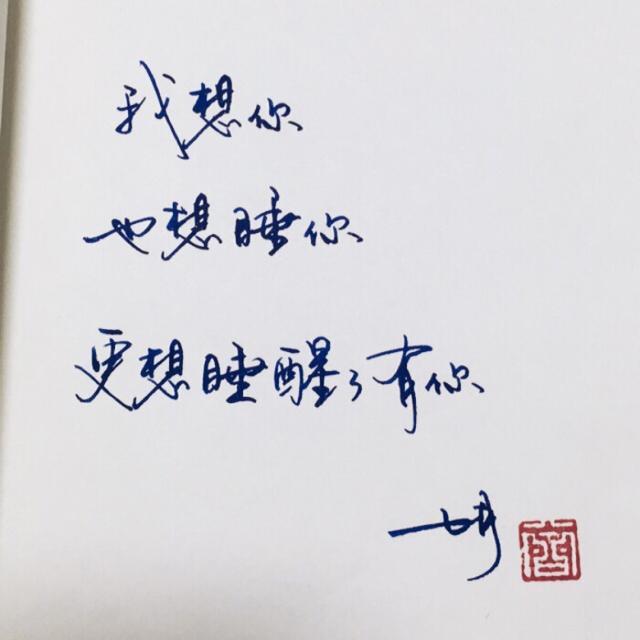 我想你
也想睡你
更想睡醒了有你